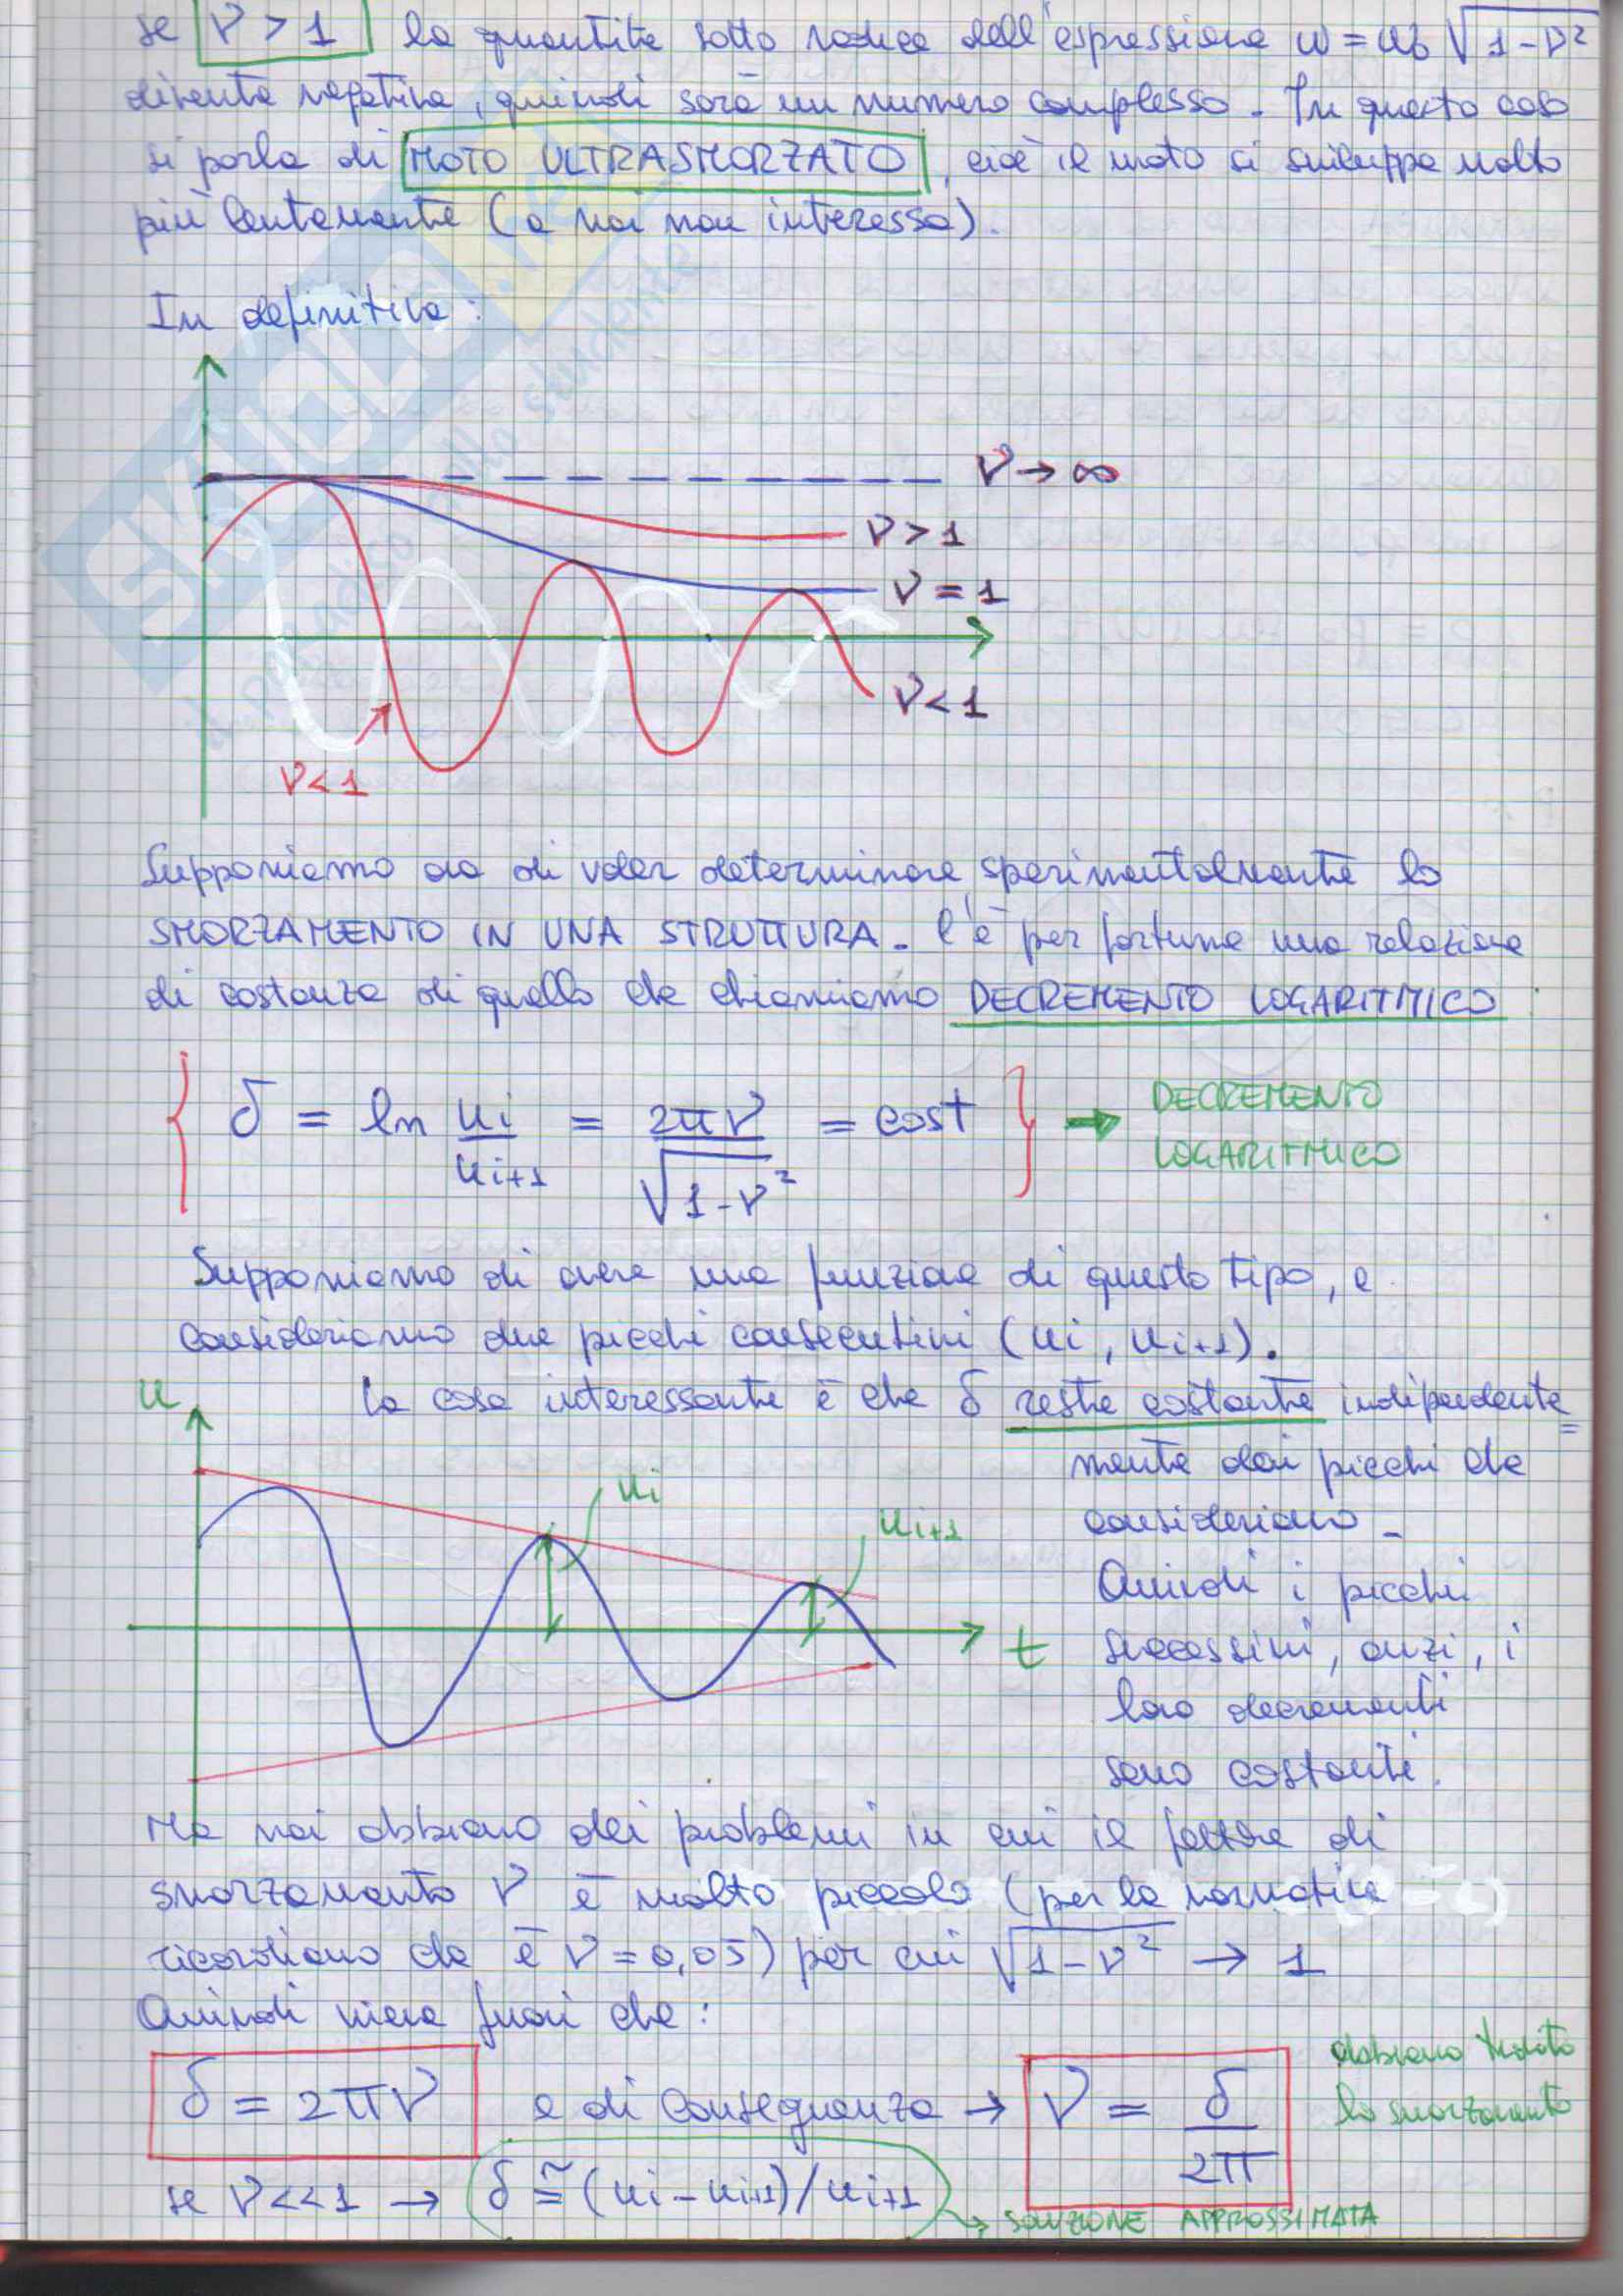 se ν > 1 la quantità sotto radice dell'espressione ω = ω₀ √1-ν²
diventa negativa, quindi sarà un numero complesso. In questo caso
si parla di MOTO ULTRASMORZATO, cioè il moto si sviluppa molto
più lentamente (a noi non interessa).
In definitiva:
ν → ∞
ν > 1
ν = 1
ν < 1
ν < 1
Supponiamo ora di voler determinare sperimentalmente lo
SMORZAMENTO IN UNA STRUTTURA. C'è per fortuna una relazione
di costanza di quello che chiamiamo DECREMENTO LOGARITMICO:
{ δ = ln ui/ui+1 = 2πν/√1-ν² = cost } → DECREMENTO
LOGARITMICO
Supponiamo di avere una funzione di questo tipo, e
consideriamo due picchi consecutivi (ui, ui+1).
u
La cosa interessante è che δ resta costante indipendente=
mente dai picchi che
consideriamo.
Quindi i picchi
successivi, anzi, i
loro decrementi
sono costanti.
ui
ui+1
t
Ma noi abbiamo dei problemi in cui il fattore di
smorzamento ν è molto piccolo (per la normativa
ricordiamo che è ν = 0,05) per cui √1-ν² → 1
Quindi viene fuori che:
δ = 2πν e di conseguenza → ν = δ/2π
abbiamo trovato
lo smorzamento
se ν<<1 → δ ≅ (ui - ui+1)/ui+1
SOLUZIONE APPROSSIMATA
SKUOLA.net